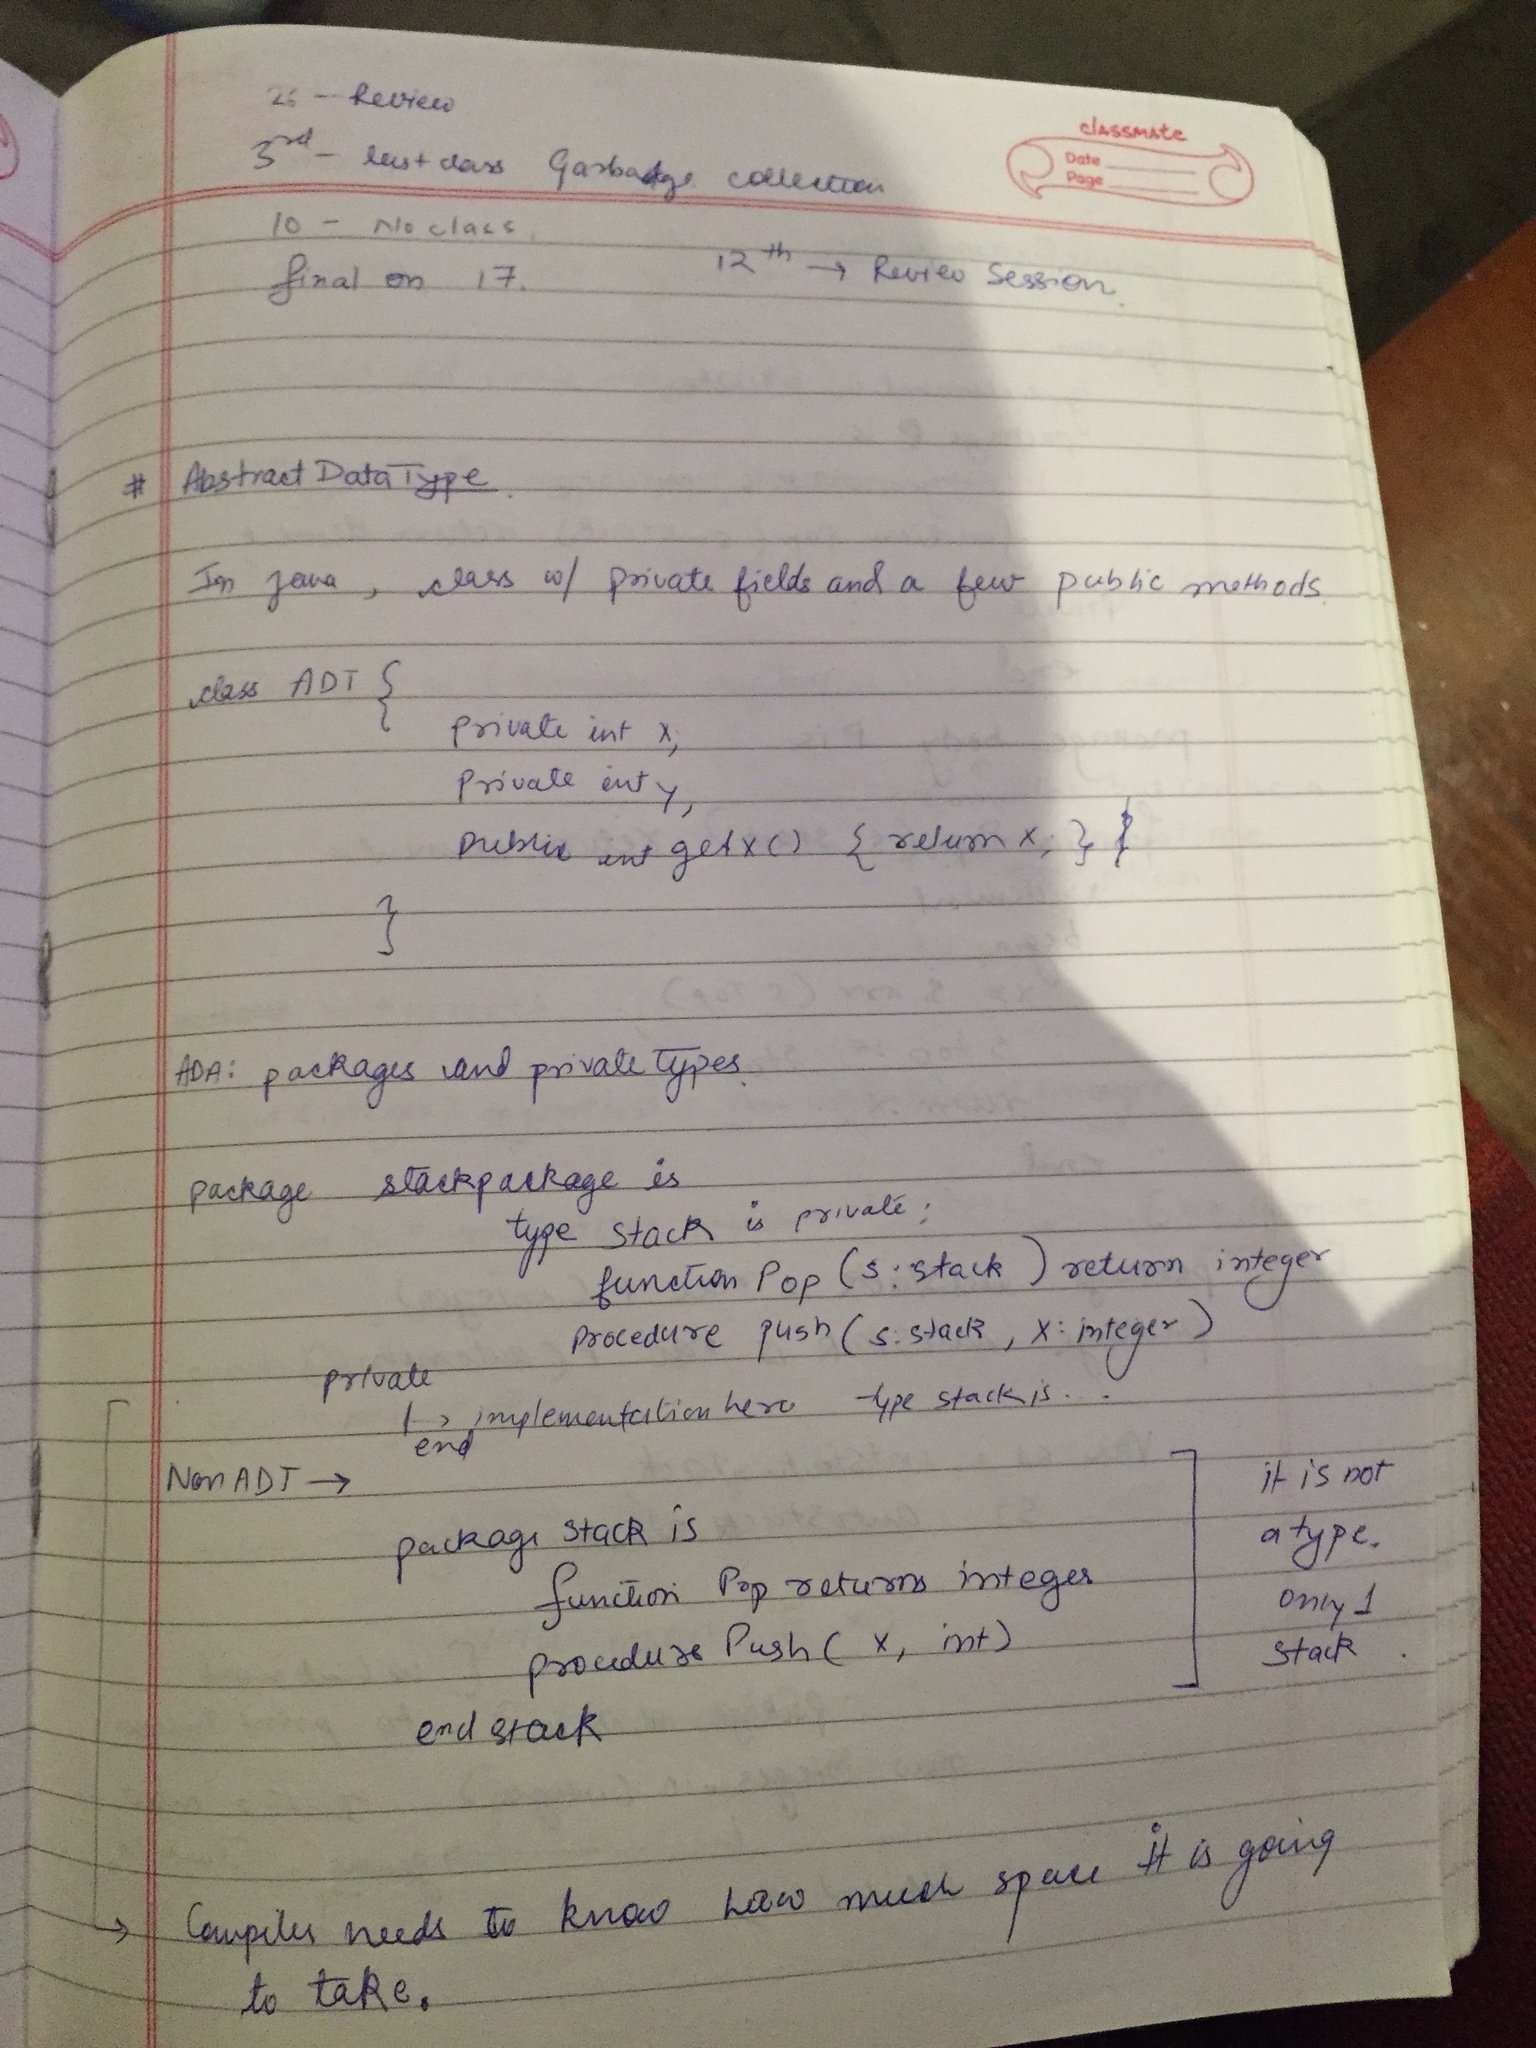 26 - Review
classmate
3rd - last class Garbadge collection
Date
Page
10 - No class.
final on 17.
12th → Review Session.
# Abstract Data Type.
In java, class w/ private fields and a few public methods.
class ADT {
private int x;
private int y,
public int getx() { return x; }
}
ADA: packages and private types.
package stackpackage is
type stack is private;
function Pop (s: stack) return integer
procedure push (s: stack, x: integer)
private
↳ implementation here type stack is...
end
Non ADT →
package stack is
function Pop returns integer
procedure Push ( x, int)
end stack
it is not
a type.
only 1
stack.
→ Compiler needs to know how much space it is going
to take.